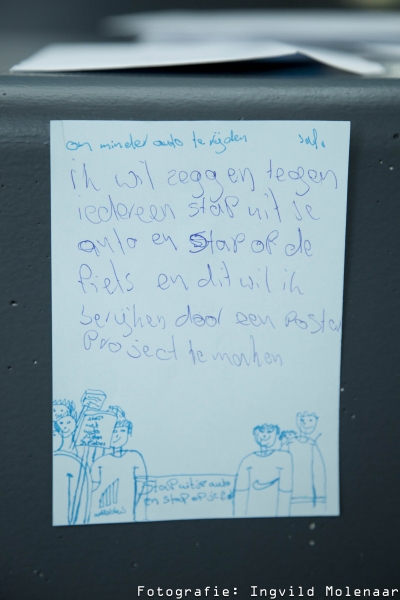 om minder auto te rijden
ik wil zeggen tegen
iedereen stap uit je
auto en stap op de
fiets en dit wil ik
berijken door een poster
project te marken
stap uit je auto
en stap op je
Fotografie: Ingvild Molenaar